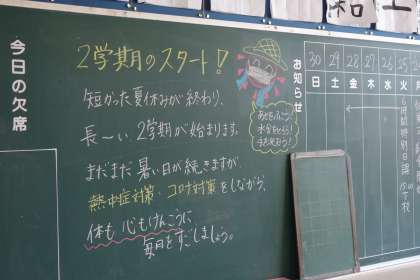 今日の欠席
2学期のスタート!
短かった夏休みが終わり、
長〜い2学期が始まります。
まだまだ暑い日が続きますが、
熱中症対策・コロナ対策をしながら、
体も心もけんこうに
毎日をすごしましょう。
水分をとろう!
手洗おう!
お知らせ
30 29 28 27 26 25
日 土 金 木 水 火